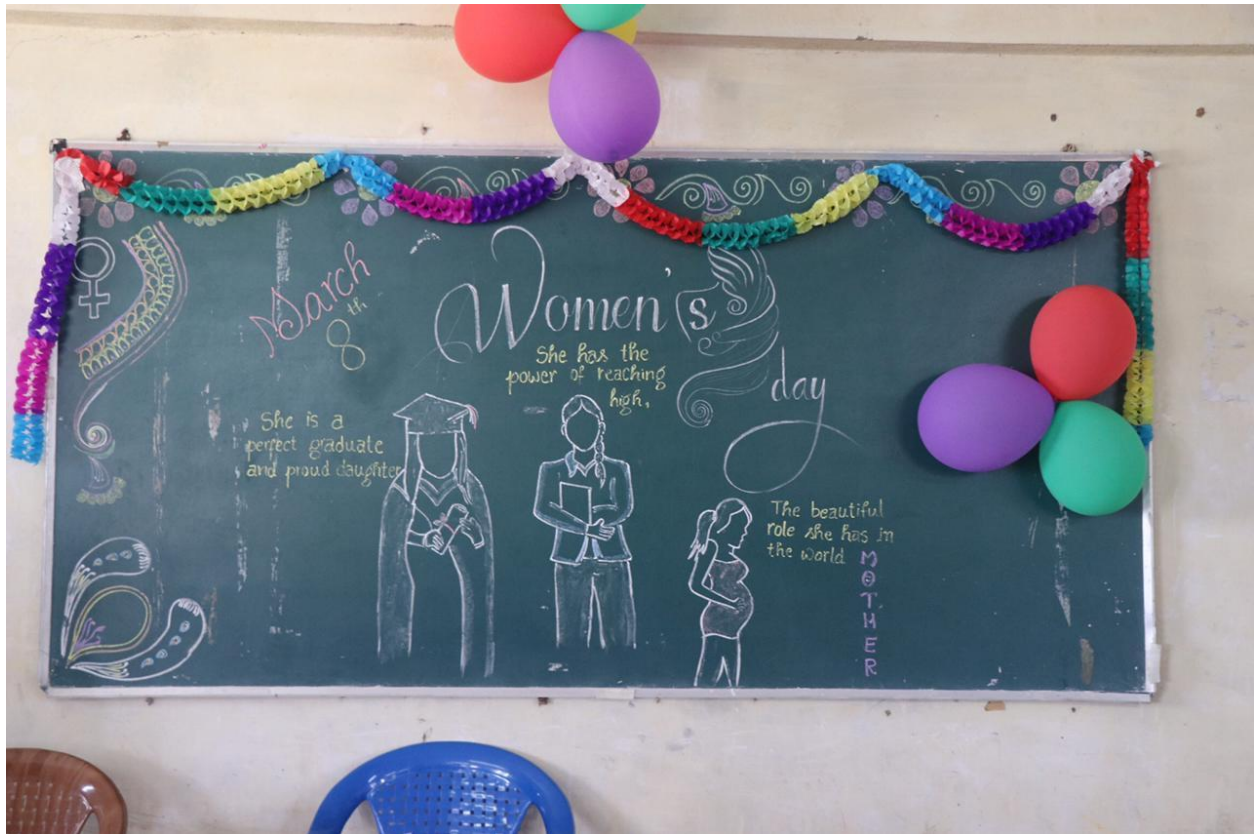 March
8th
Women's
day
She has the
power of reaching
high,
She is a
perfect graduate
and proud daughter
The beautiful
role she has in
the world
MOTHER